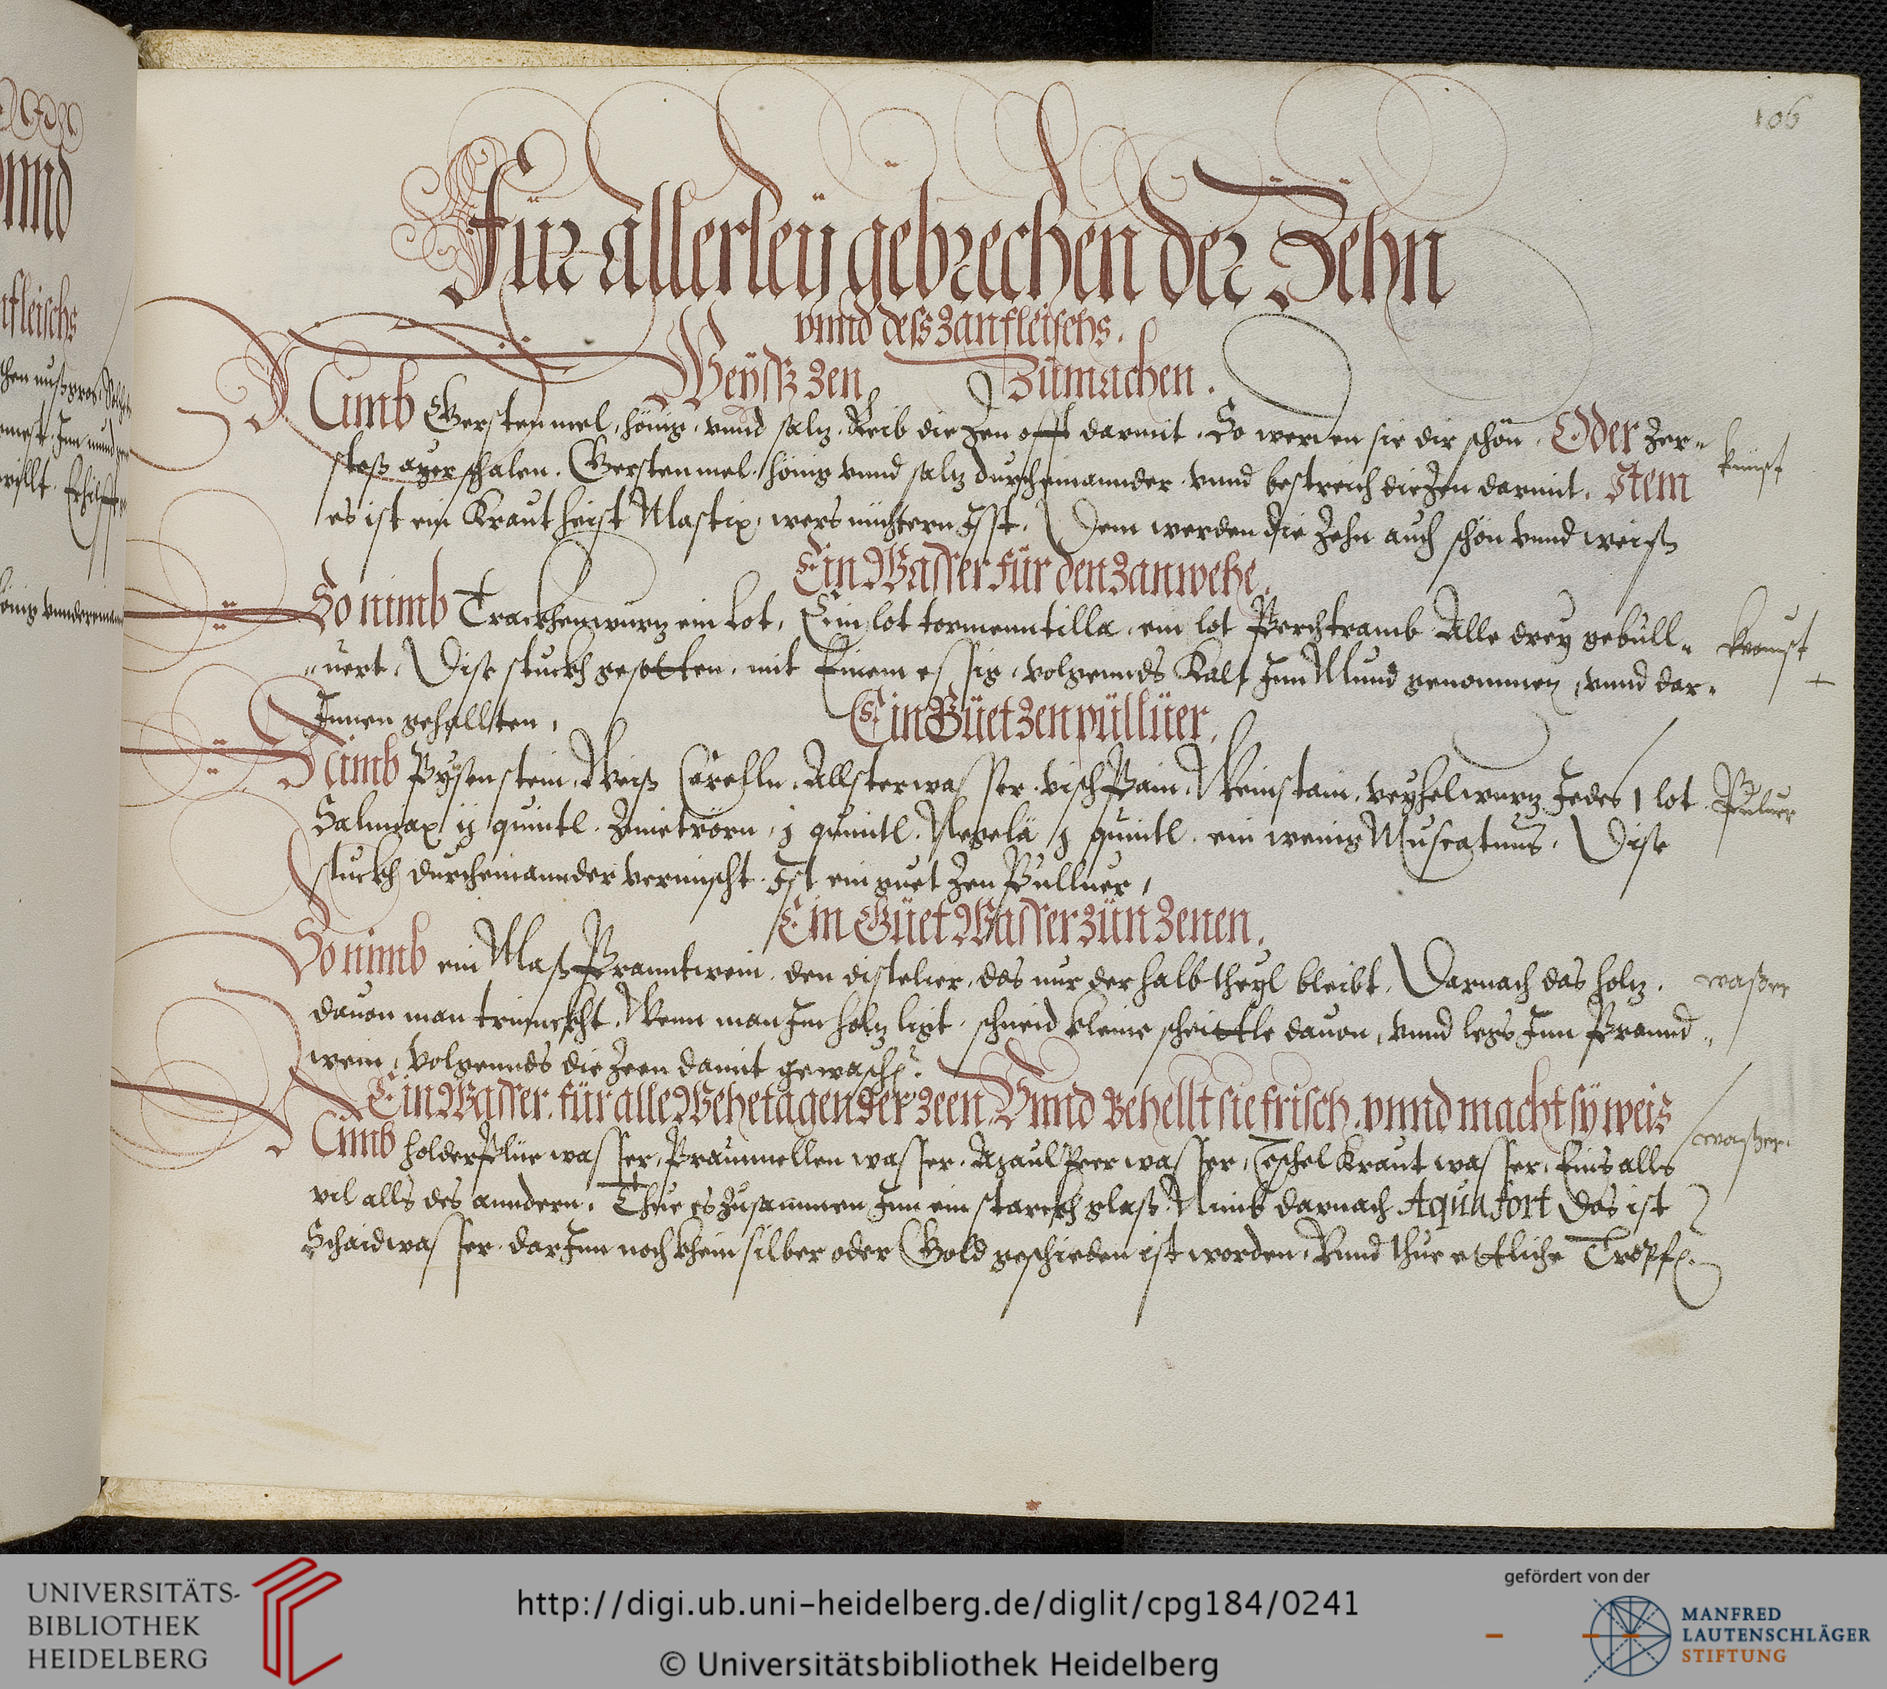 106
Für allerleÿ gebrechen der Zehn
vnnd deß Zanfleischs.
Weÿsß Zen Zumachen.
Nimb Gerstenmel, hönig, vnnd saltz, Reib die Zen offt darmit, So werden sie dir schön, Oder Zer=
stoß ayerschalen. Gerstenmel, hönig vnnd saltz durcheinannder, vnnd bestreich die Zen darmit. Item
es ist ein Kraut heist Mastix, wers nüchtern Isst, Dem werden die Zehn auch schön vnnd weiß
kunst
Ein Wasser für den Zanwehe.
So nimb Trackhenwurtz ein lot, Ein lot tormenntilla, ein lot Perchtramb Alle drey gebüll=
=uert, Dise stuckh gesotten, mit Einem essig, volgennds Kalt Inn Mund genommen, vnnd dar=
Innen gehallten,
kunst
Ein Güet Zen püllüer.
Nimb Pÿsenstein, Weiß Corelln, Allsterwasser, vischPain, Weinstain, veyhelwurtz Jedes 1 lot
Salmiax ij quintl, Zimetrörn, j quintl, Negelä j quintl, ein wenig Muscatnus, Dise
stuckh durcheinannder vermischt, Ist ein guet Zen Pulluer,
Puluer
Ein Güet Wasser zün Zenen.
So nimb ein Maß Pranntwein, den distelier, das nur der halb theyl bleibt, Darnach das holtz,
dauon man trinnckht, Wenn man Im holtz ligt, schneid kleine scheittle dauon, vnnd legs Inn Prannd=
wein, volgennds die Zeen damit gewaschen.
wasser
Ein Wasser, für alle Wehetagen der Zeen, Vnnd Behellt sie frisch, vnnd macht sÿ weis
Nimb holderPlüe wasser, Praunnellen wasser, AgaulPeer wasser, Teschelkraut wasser, Eins alls
vil alls des anndern, Thue es Zusammen Inn ein starckh glaß, Nimb darnach Aqua fort das ist
Schaidwasser, darInn noch khein silber oder Gold geschieden ist worden, Vnnd thue ettliche Tropfen
wasser
UNIVERSITÄTS-
BIBLIOTHEK
HEIDELBERG
http://digi.ub.uni-heidelberg.de/diglit/cpg184/0241
© Universitätsbibliothek Heidelberg
gefördert von der
MANFRED
LAUTENSCHLÄGER
STIFTUNG